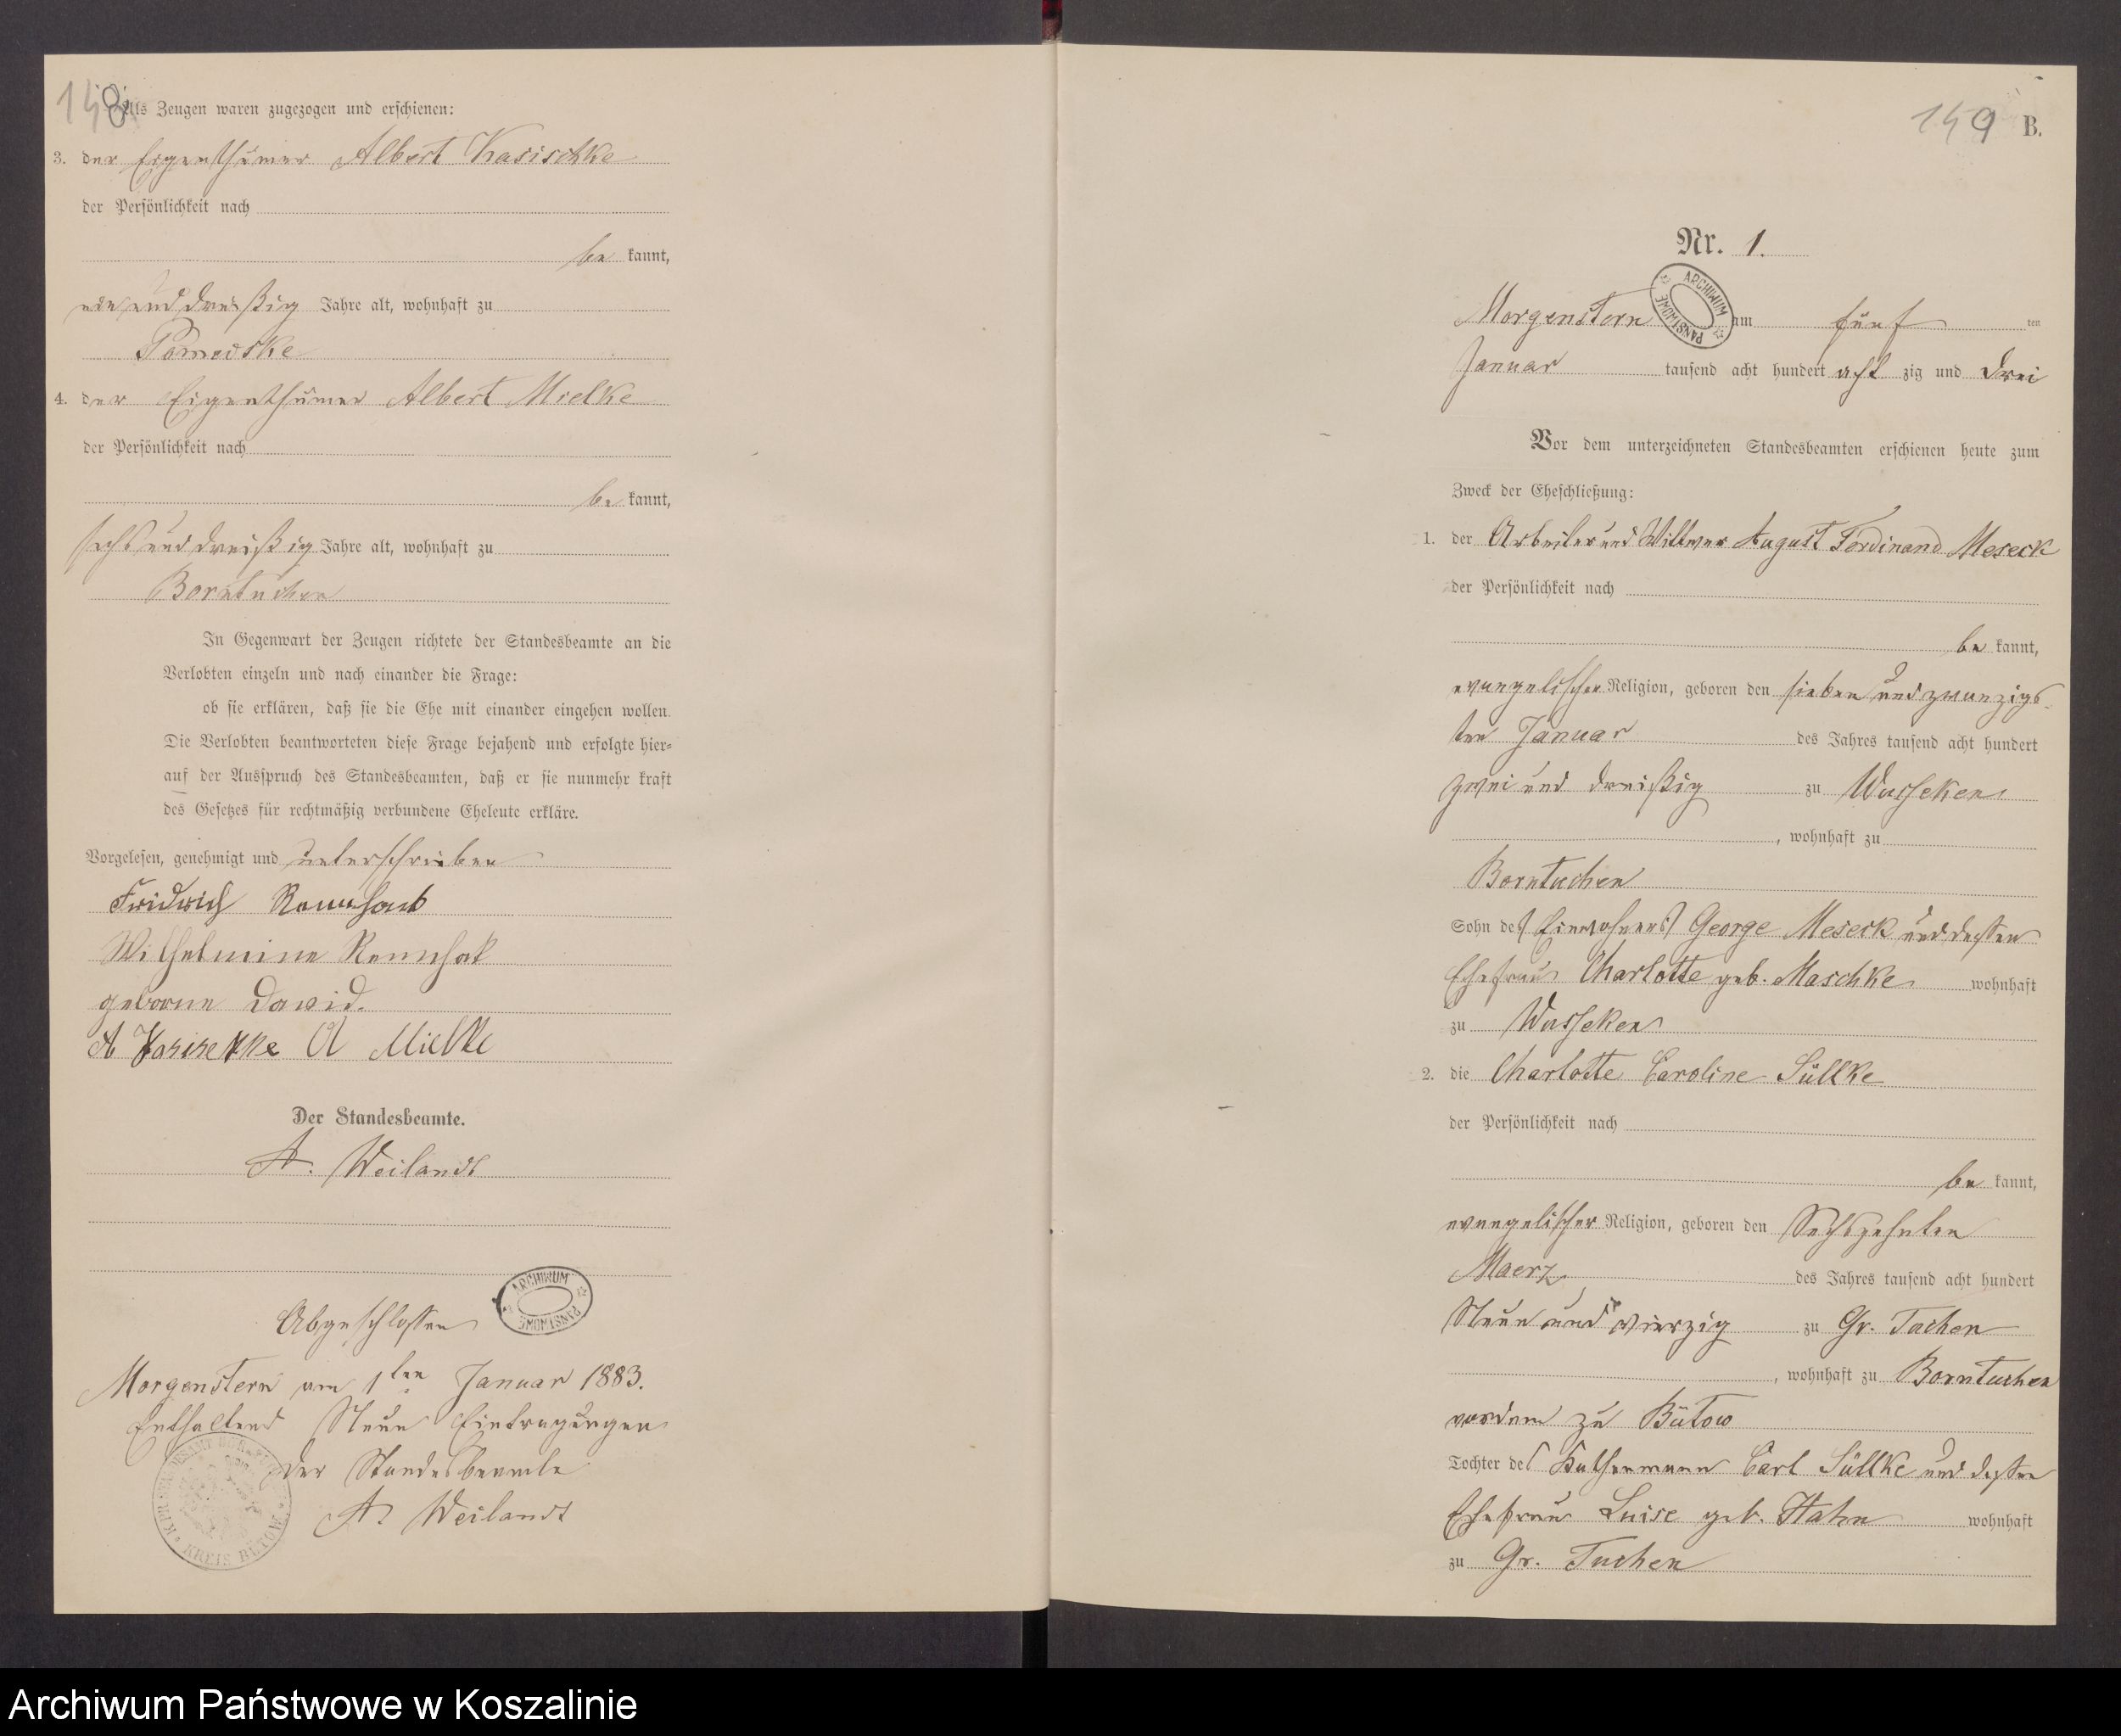 148
Als Zeugen waren zugezogen und erschienen:
3. der Eigenthümer Albert Kasischke
der Persönlichkeit nach
be kannt,
ein und dreißig Jahre alt, wohnhaft zu
Pomeiske
4. der Eigenthümer Albert Mielke
der Persönlichkeit nach
be kannt,
sechs und dreißig Jahre alt, wohnhaft zu
Borntuchen
In Gegenwart der Zeugen richtete der Standesbeamte an die
Verlobten einzeln und nach einander die Frage:
ob sie erklären, daß sie die Ehe mit einander eingehen wollen.
Die Verlobten beantworteten diese Frage bejahend und erfolgte hier=
auf der Ausspruch des Standesbeamten, daß er sie nunmehr kraft
des Gesetzes für rechtmäßig verbundene Eheleute erkläre.
Vorgelesen, genehmigt und unterschrieben
Wilhelmine
geborne David.
A A Mielke
Der Standesbeamte.
A. Weilandt
ARCHIWUM PAŃSTWOWE
Abgeschlossen
Morgenstern am 1ten Januar 1883.
Enthaltend Neun Eintragungen
Der Standesbeamte
A. Weilandt
KREIS BÜTOW
149 B.
Nr. 1.
ARCHIWUM PAŃSTWOWE
Morgenstern am fünf ten
Januar tausend acht hundert acht zig und drei
Vor dem unterzeichneten Standesbeamten erschienen heute zum
Zweck der Eheschließung:
1. der Arbeiter und Wittwer August Ferdinand Meseck
der Persönlichkeit nach
be kannt,
evangelischer Religion, geboren den sieben und zwanzigs-
ten Januar des Jahres tausend acht hundert
zwei und dreißig zu Wusseken
, wohnhaft zu
Borntuchen
Sohn des Einwohners George Meseck und dessen
Ehefrau Charlotte geb. Maschke wohnhaft
zu Wusseken
2. die Charlotte Caroline Süllke
der Persönlichkeit nach
be kannt,
evangelischer Religion, geboren den Sechszehnten
Maerz des Jahres tausend acht hundert
Neun und vierzig zu Gr. Tuchen
, wohnhaft zu Borntuchen
vordem zu Bütow
Tochter des Kathenmann Carl Süllke und dessen
Ehefrau Luise geb. Hahn wohnhaft
zu Gr. Tuchen
Archiwum Państwowe w Koszalinie